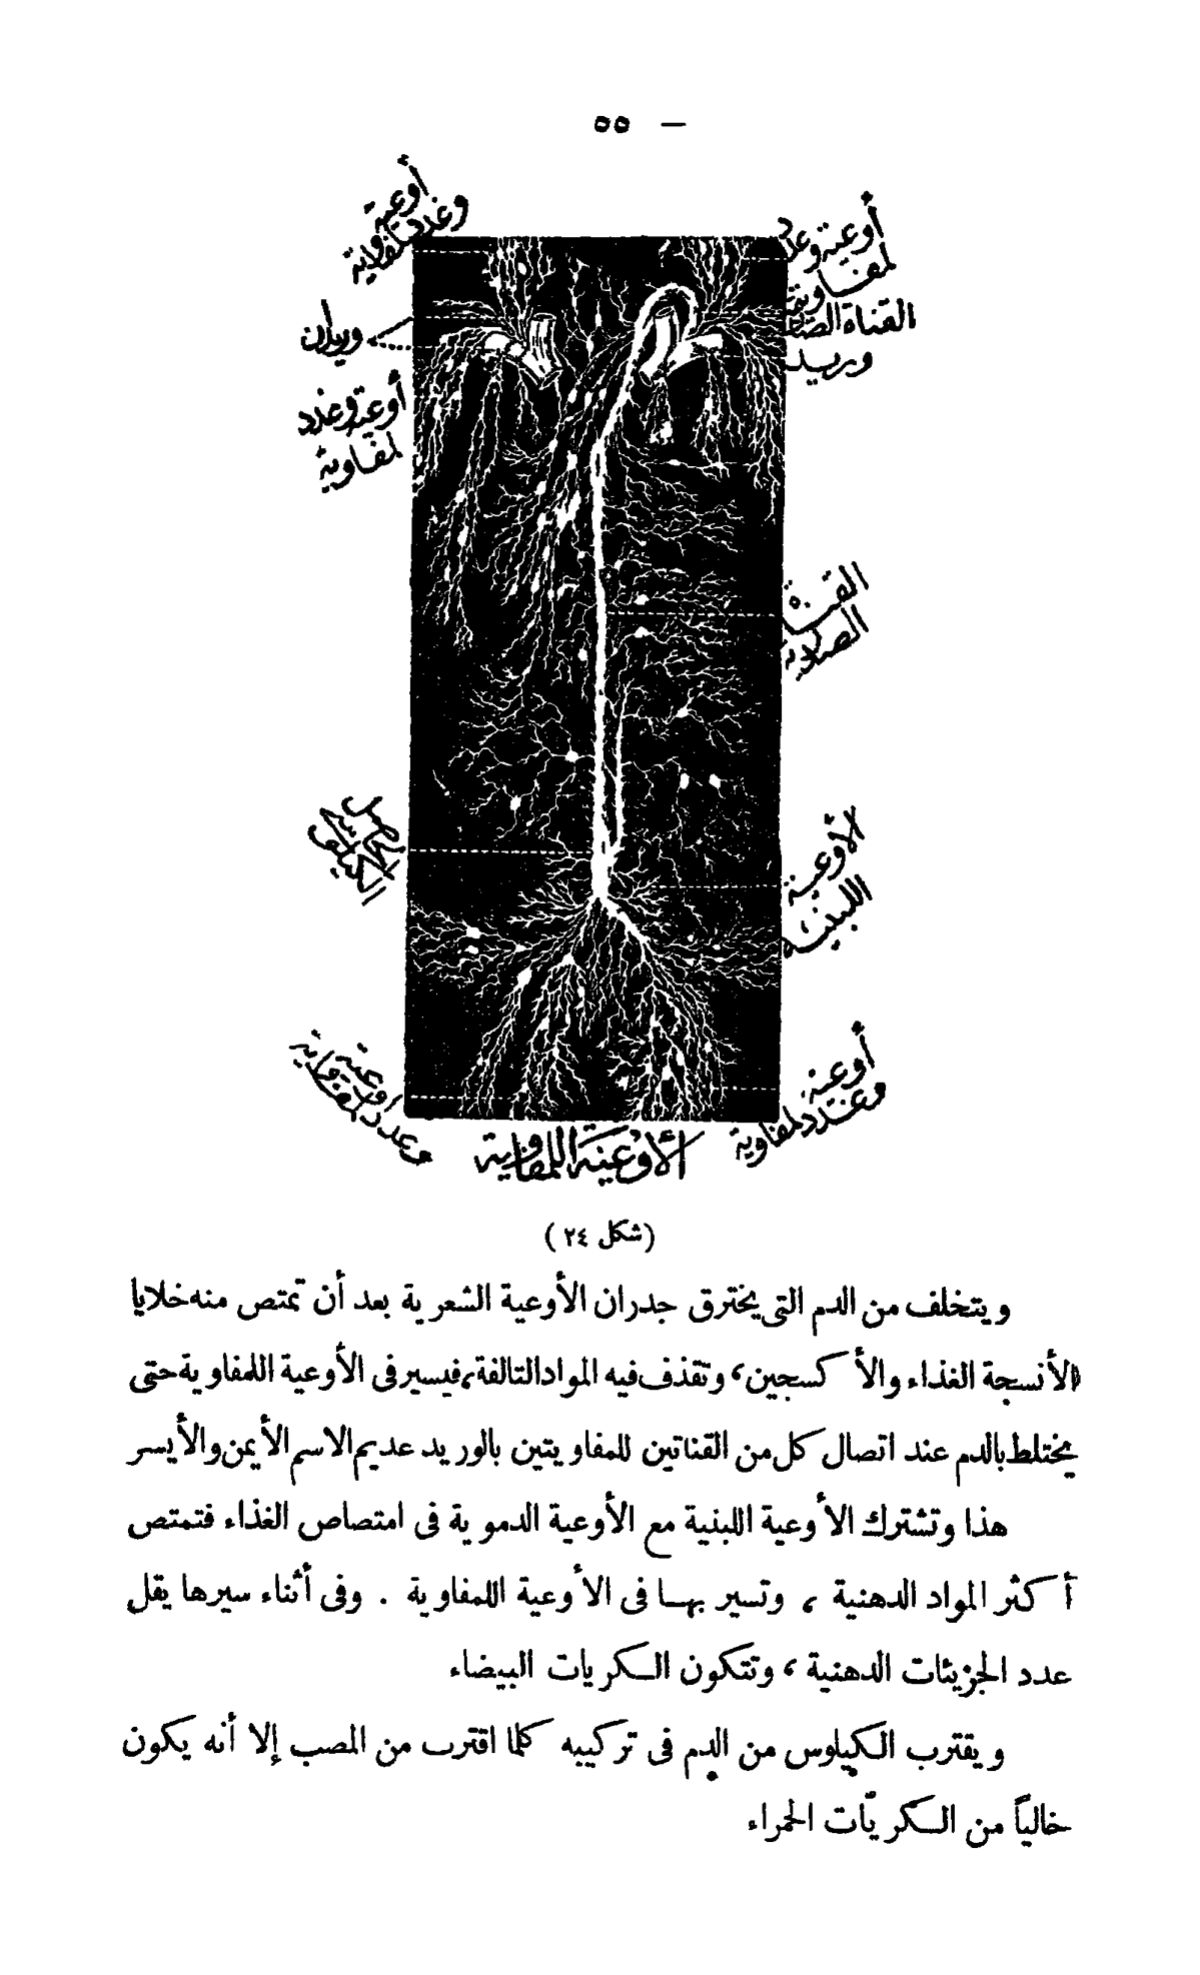 — ٥٥
أوعية
وغدد لمفاوية
أوعية وغدد
لمفاوية
القناة
وريدان
وريد
أوعية وغدد
لمفاوية
القناة
الصدرية
الكيلوسى
الأوعية
اللبنية
أوعية
وغدد لمفاوية
أوعية
وغدد لمفاوية
الأوعية اللمفاوية
(شكل ٢٤)
ويتخلف من الدم التى يخترق جدران الأوعية الشعرية بعد أن تمتص منه خلايا
الأنسجة الغذاء والأكسجين، وتقذف فيه المواد التالفة، فيسير فى الأوعية اللمفاوية حتى
يختلط بالدم عند اتصال كل من القناتين للمفاويتين بالوريد عديم الاسم الأيمن والأيسر
هذا وتشترك الأوعية اللبنية مع الأوعية الدموية فى امتصاص الغذاء فتمتص
أكثر المواد الدهنية ، وتسير بها فى الأوعية اللمفاوية . وفى أثناء سيرها يقل
عدد الجزيئات الدهنية ، وتتكون الكريات البيضاء
ويقترب الكيلوس من الدم فى تركيبه كلما اقترب من المصب إلا أنه يكون
خالياً من الكريّات الحمراء